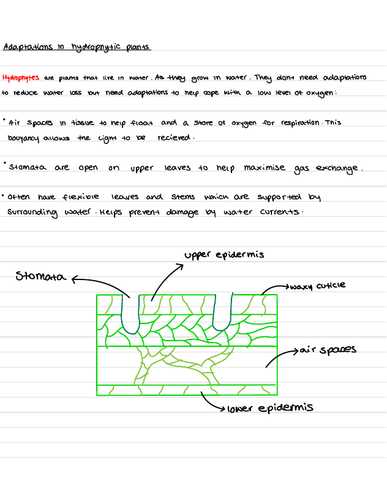 Adaptations in hydrophytic plants
Hydrophytes are plants that live in water. As they grow in water. They dont need adaptations
to reduce water loss but need adaptations to help cope with a low level of oxygen:
• Air spaces in tissue to help float and a store of oxygen for respiration. This
buoyancy allows the light to be recieved.
• Stomata are open on upper leaves to help maximise gas exchange.
• Often have flexible leaves and stems which are supported by
surrounding water. Helps prevent damage by water currents.
upper epidermis
Stomata
waxy cuticle
air spaces
lower epidermis